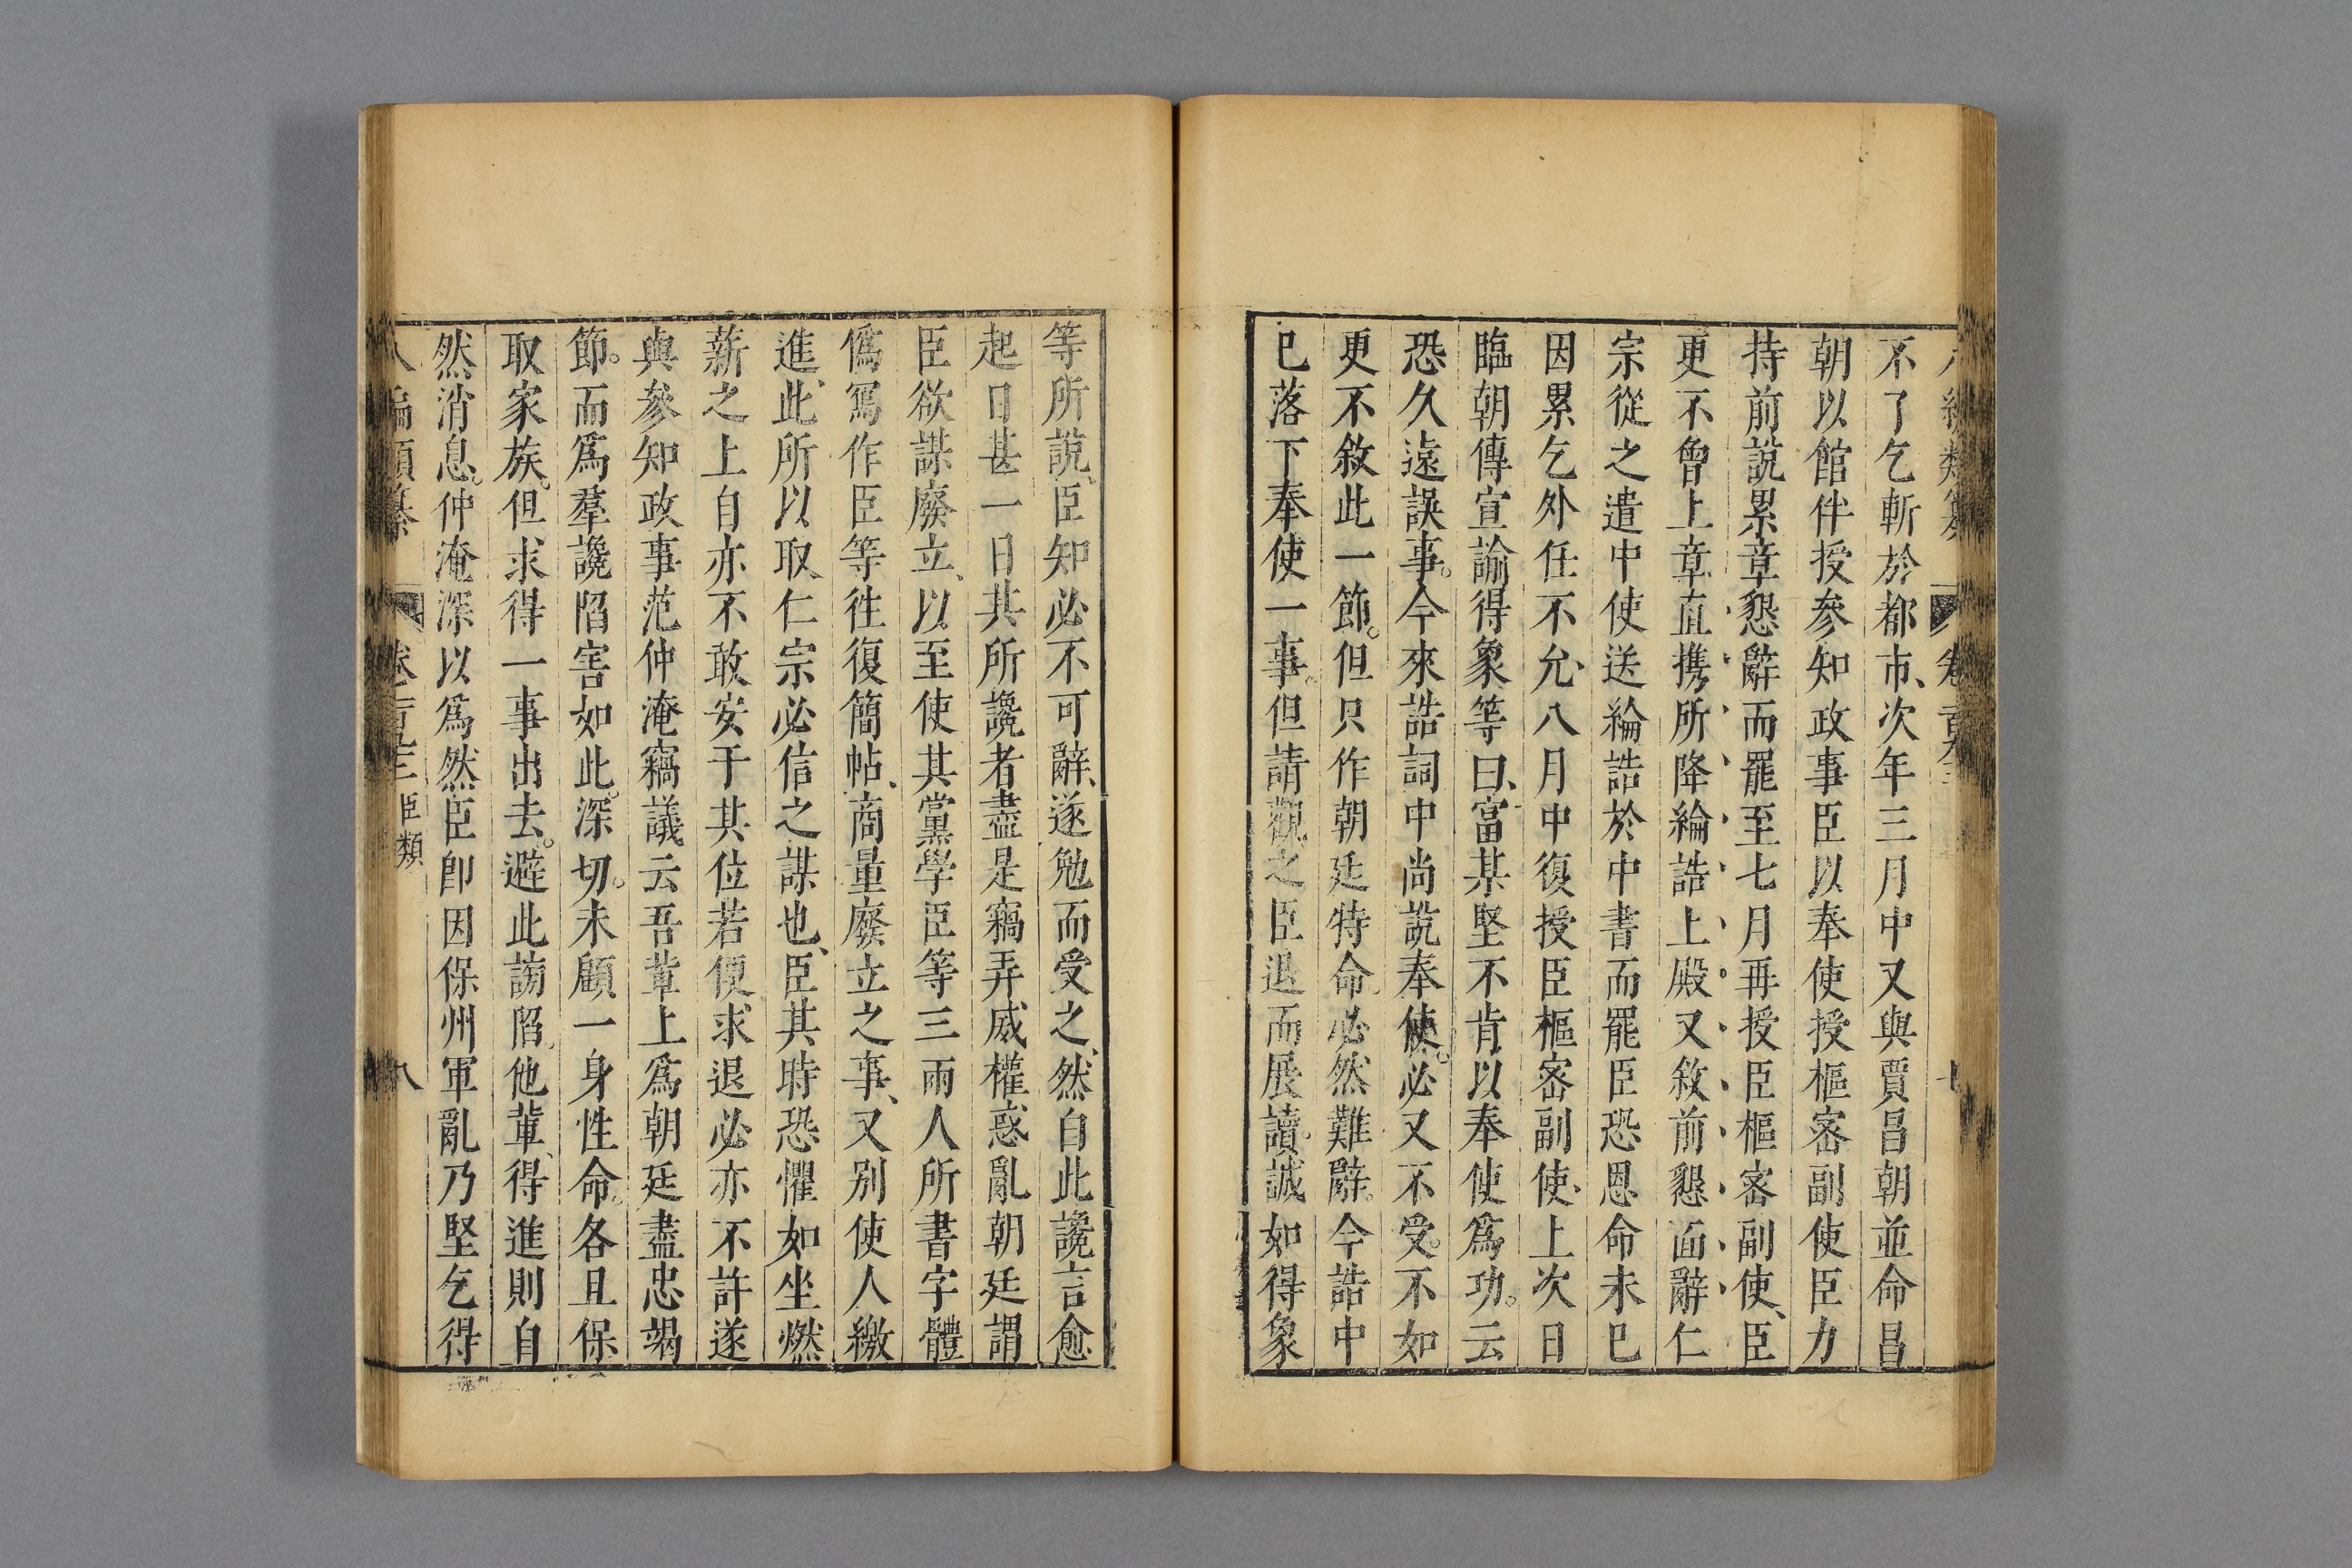 不了乞斬於都市次年三月中又與賈昌朝並命昌
朝以館伴授參知政事臣以奉使授樞密副使臣力
持前說累章懇辭而罷至七月再授臣樞密副使臣
更不曾上章直携所降綸誥上殿又敘前懇面辭仁
宗從之遣中使送綸誥於中書而罷臣恐恩命未已
因累乞外任不允八月中復授臣樞密副使上次日
臨朝傳宣諭得象等曰富某堅不肯以奉使爲功云
恐久遠誤事今來誥詞中尚說奉使必又不受不如
更不敘此一節但只作朝廷特命必然難辭今誥中
已落下奉使一事但請觀之臣退而展讀誠如得象
等所說臣知必不可辭遂勉而受之然自此讒言愈
起日甚一日其所讒者盡是竊弄威權惑亂朝廷謂
臣欲謀廢立以至使其黨學臣等三兩人所書字體
僞寫作臣等徃復簡帖商量廢立之事又別使人繳
進此所以取仁宗必信之謀也臣其時恐懼如坐燃
薪之上自亦不敢安于其位若便求退必亦不許遂
與參知政事范仲淹竊議云吾輩上爲朝廷盡忠竭
節而爲羣讒陷害如此深切未顧一身性命各且保
取家族但求得一事出去避此謗陷他輩得進則自
然消息仲淹深以爲然臣卽因保州軍亂乃堅乞得
八編類纂 卷 臣類 八